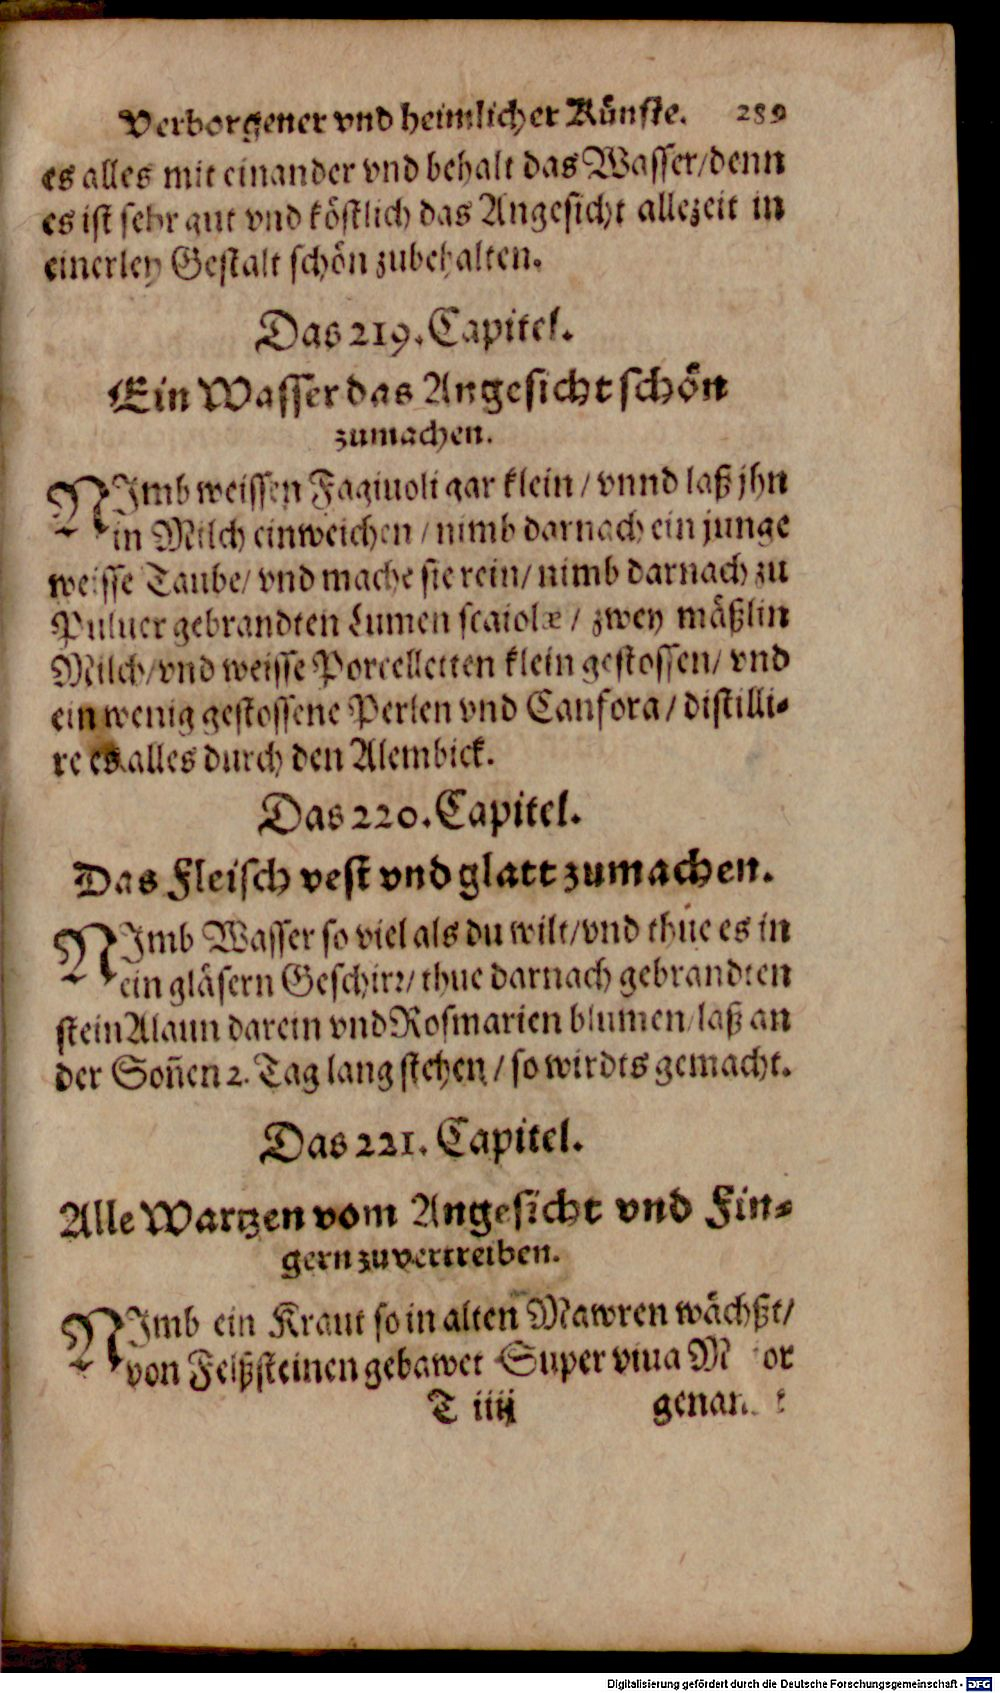 Verborgener vnd heimlicher Künste. 289
es alles mit einander vnd behalt das Wasser/denn
es ist sehr gut vnd köstlich das Angesicht allezeit in
einerley Gestalt schön zubehalten.
Das 219. Capitel.
Ein Wasser das Angesicht schön
zumachen.
NImb weissen Fagiuoli gar klein / vnnd laß jhn
in Milch einweichen / nimb darnach ein junge
weisse Taube/ vnd mache sie rein/ nimb darnach zu
Puluer gebrandten Lumen scaiolæ / zwey mäßlin
Milch/vnd weisse Porcelletten klein gestossen/ vnd
ein wenig gestossene Perlen vnd Canfora / distilli-
re es alles durch den Alembick.
Das 220. Capitel.
Das Fleisch vest vnd glatt zumachen.
NImb Wasser so viel als du wilt/vnd thue es in
ein gläsern Geschirr/ thue darnach gebrandten
stein Alaun darein vnd Rosmarien blumen/laß an
der Soñen 2. Tag lang stehen / so wirdts gemacht.
Das 221. Capitel.
Alle Wartzen vom Angesicht vnd Fin-
gern zuvertreiben.
NImb ein Kraut so in alten Mawren wächßt/
von Felßsteinen gebawet Super viua
T iiij
Digitalisierung gefördert durch die Deutsche Forschungsgemeinschaft - DFG